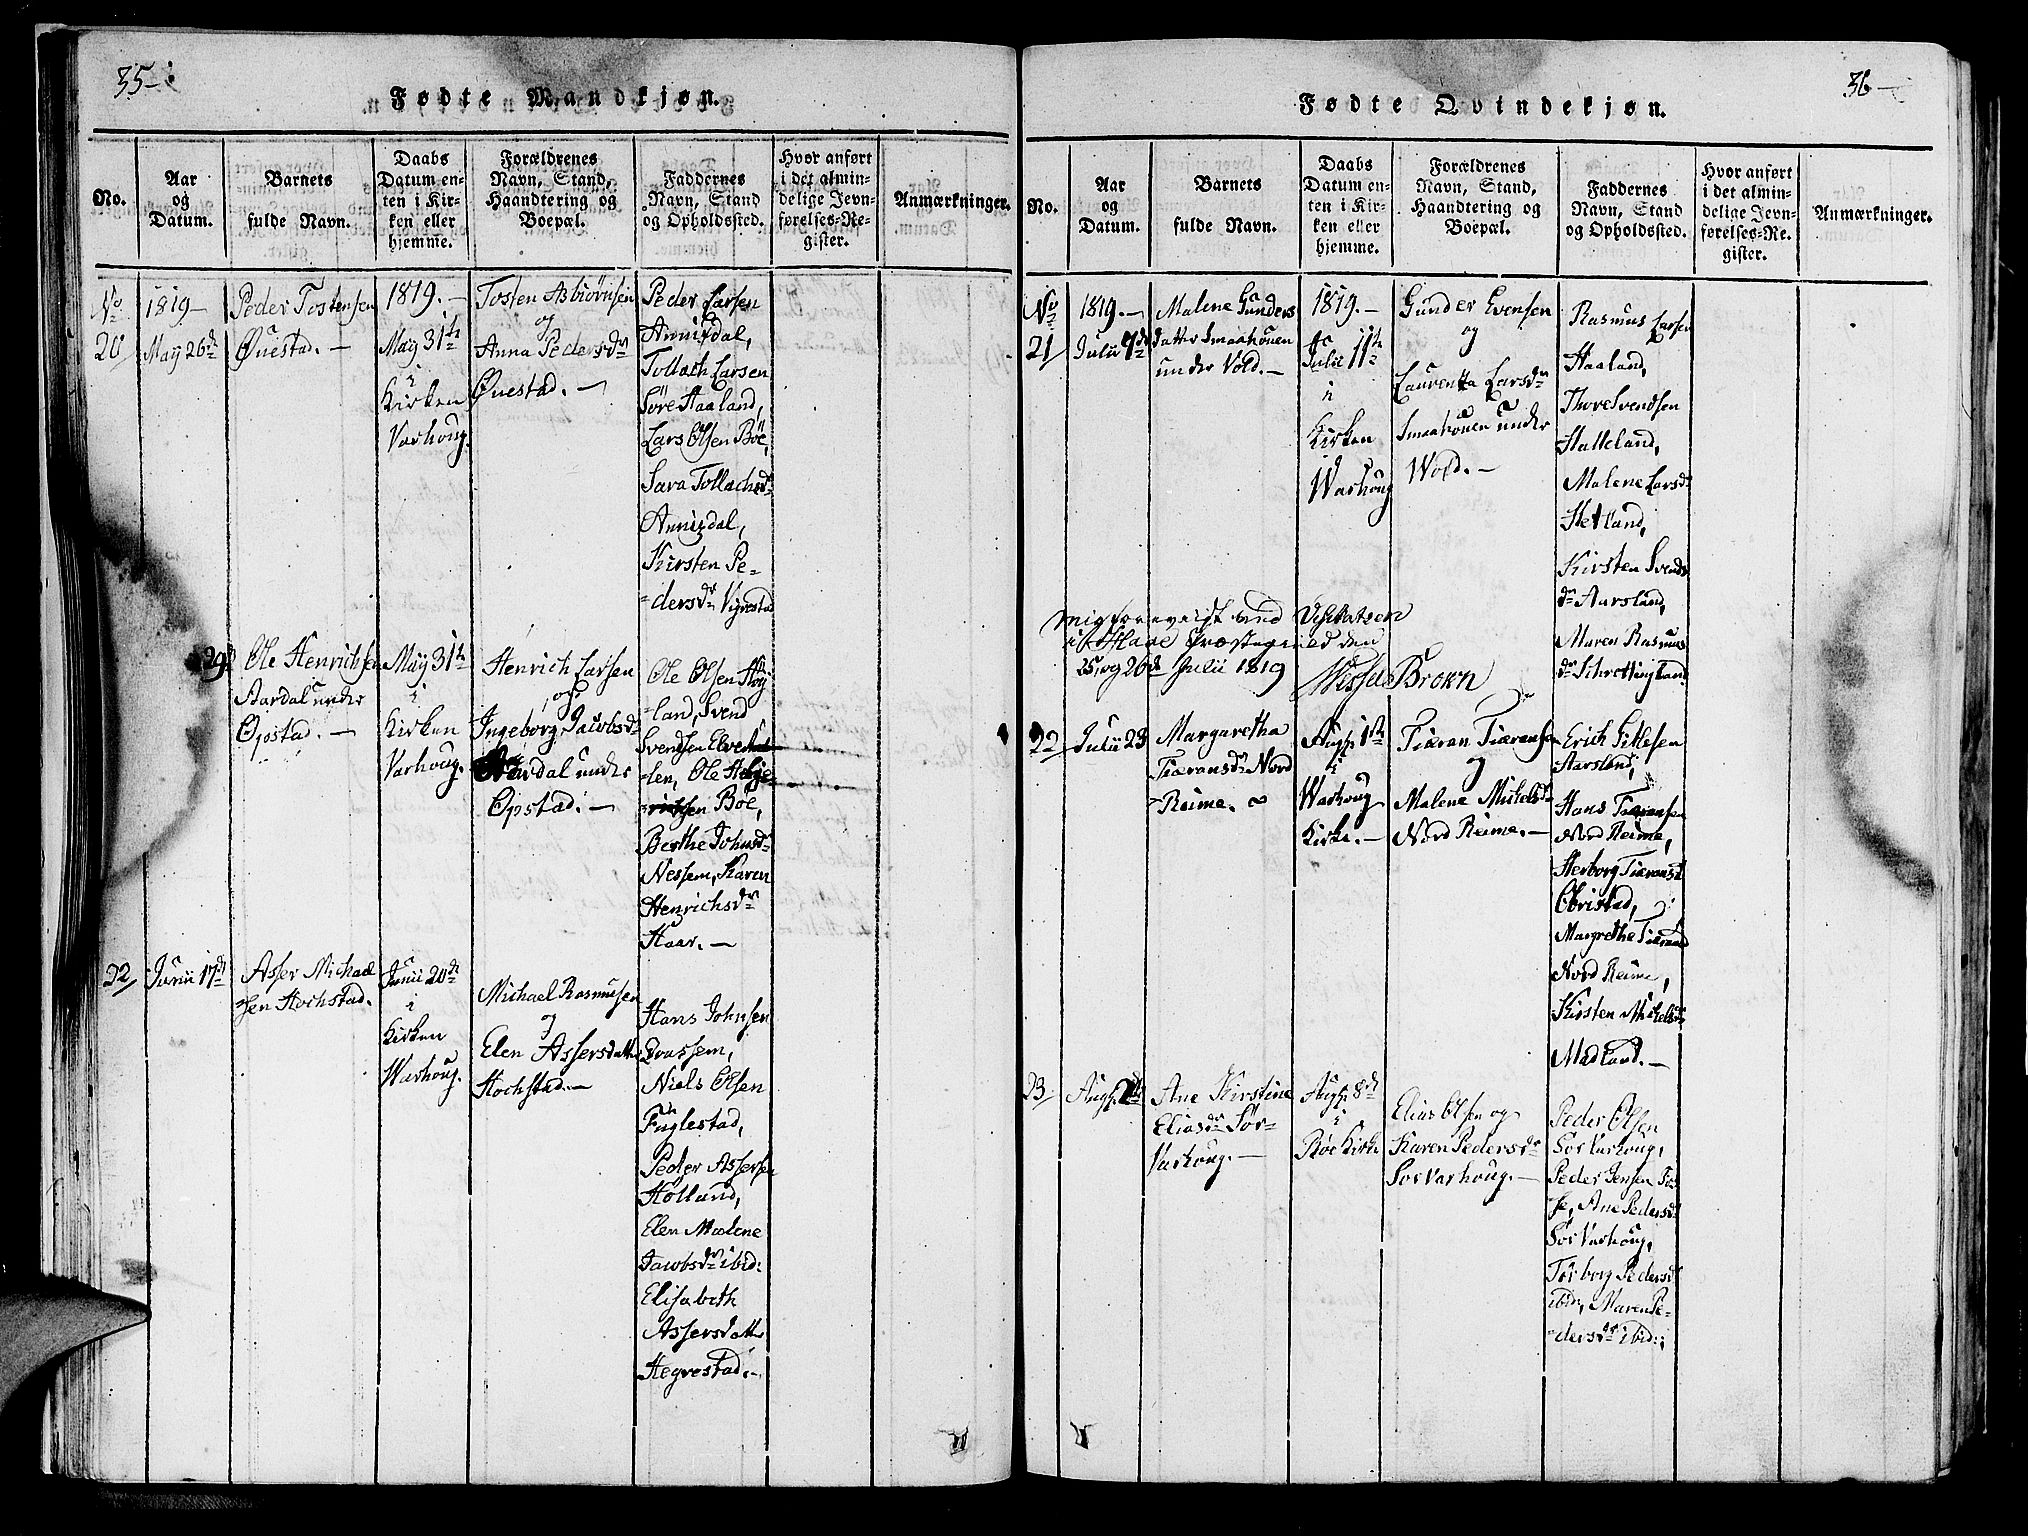 35-
Fødte Mandkjøn.
No.
Aar
og
Datum.
Barnets
fulde Navn.
Daabs
Datum en-
ten i Kir-
ken eller
hjemme.
Forældrenes
Navn, Stand,
Haandtering og
Boepæl.
Faddernes
Navn, Stand
og Opholdssted.
Hvor anført
i det almin-
delige Jevn-
førelses-Re-
gister.
Anmærkninger.
No
20
1819-
May 26d
Peder Tostensen
Øuestad.-
1819.-
May 31th
i
Kirken
Varhoug.
Tosten Asbiørnsen
og
Anna Pedersdr
Øuestad.-
Peder Larsen
Annisdal,
Tollach Larsen
Søre Haaland,
Lars Olsen Böe,
Sara Tollachsdr
Annisdal,
Kirsten Pe-
-dersdr Vigrestad
Ole Henrichsen
Aardal under
Opstad.-
May 31th
i
Kirken
Varhoug.
Henrich Larsen
og
Ingeborg Jacobsdr
Aardal under
Opstad.-
Ole Olsen Høy
-land, Svend
Svendsen
-len, Ole
Böe,
Berthe Johnsdr
Nessem, Karen
Henrichsdr
Haar.-
22
Junii 17d
Asser Michael
-sen Hochstad.
Junii 20d
i
Kirken
Warhoug.
Michael Rasmussen
og
Elen Assersdatter
Hochstad.-
Hans Johnsen
Qvassem,
Niels Olsen
Fuglestad,
Peder Assersen
Hölland,
Elen Malene
Jacobsdr ibid:
Elisabeth
Assersdatter
Hegrestad.-
36-
Fødte Qvindekjøn.
No.
Aar
og
Datum.
Barnets
fulde Navn.
Daabs
Datum en-
ten i Kir-
ken eller
hjemme.
Forældrenes
Navn, Stand,
Haandtering og
Boepæl.
Faddernes
Navn, Stand
og Opholdssted.
Hvor anført
i det almin-
delige Jevn-
førelses-Re-
gister.
Anmærkninger.
No
21
1819.-
Julii 7d
Malene Gunders
datter Smaahouen
under Vold.-
1819.-
Julii 11th
i
Kirken
Warhoug
Gunder Evensen
og
Laurentta Larsdr
Smaahouen under
Wold.-
Rasmus Larsen
Haaland,
Thore Svendsen
Halleland,
Malene Larsdr
Hetland,
Kirsten Svends
dr Aarsland,
Maren Rasmus
dr Schrettingland
Mig foreviist ved Visitatsen
i Haae Præstegield den
25 og 26d Julii 1819
Wessel Brown
22
Julii 23
Margaretha
Tiæransdr Nord
-Reime.
Aug. 1th
i
Warhoug
Kirke.-
Tiæran Tiæransen
og
Malene Mickelsdr
Nord Reime.-
Erich Sitlesen
Aarsland,
Hans Tiæransen
Nord Reime,
Herborg Tiæransd
Obristad,
Margrethe Tiæransd
Nord Reime,
Kirsten Mickelsdr
Madland.-
23
Ane Kirstine
Eliasdr Sør-
Varhoug.-
Aug. 8d
i
Böe Kirke
Elias Olsen og
Karen Pedersdr
Sør Varhoug.-
Peder Olsen
Sør Varhoug,
Peder Jensen Tos
se, Ane Pedersdr
Sør Varhoug,
Torborg Pedersd
ibid, Maren Pe-
-dersdr ibid: